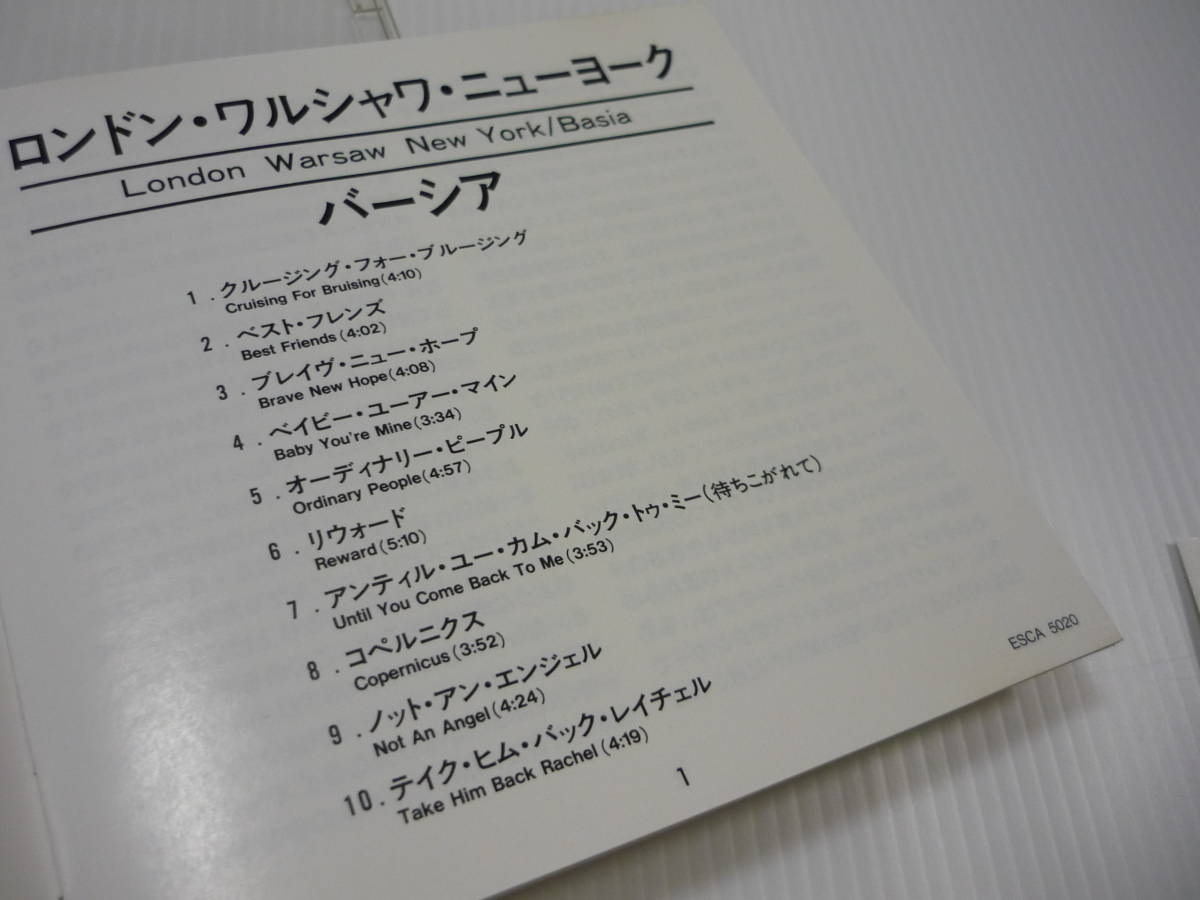 ロンドン・ワルシャワ・ニューヨーク
London Warsaw New York/Basia
バーシア
1.クルージング・フォー・ブルージング
Cruising For Bruising(4:10)
2.ベスト・フレンズ
Best Friends(4:02)
3.ブレイヴ・ニュー・ホープ
Brave New Hope(4:08)
4.ベイビー・ユーアー・マイン
Baby You're Mine(3:34)
5.オーディナリー・ピープル
Ordinary People(4:57)
6.リウォード
Reward(5:10)
7.アンティル・ユー・カム・バック・トゥ・ミー(待ちこがれて)
Until You Come Back To Me(3:53)
8.コペルニクス
Copernicus(3:52)
9.ノット・アン・エンジェル
Not An Angel(4:24)
10.テイク・ヒム・バック・レイチェル
Take Him Back Rachel(4:19)
ESCA 5020
1